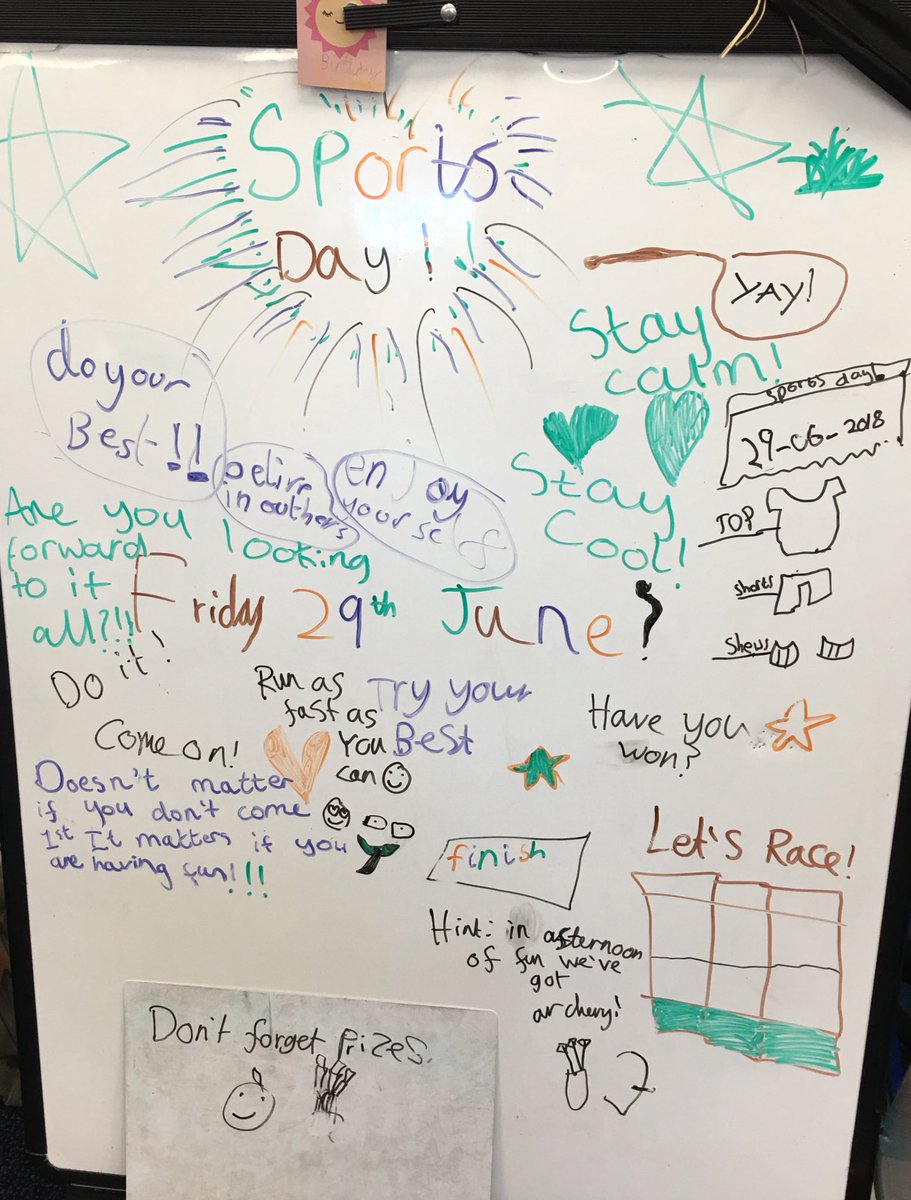 Birthday
Sports
Day!!
YAY!
Stay
calm!
do your
Best!!
sports day
29-06-2018
in others
en joy
your self
Stay
Cool!
Are you looking
forward
to it
all?!!
TOP
Shorts
Shews
Friday 29th June?
Do it!
Run as
fast as
You
can
Try your
BEST
Have you
won?
Come on!
Doesn't matter
if you don't come
1st It matters if you
are having fun!!!
finish
Let's Race!
Hint: in afternoon
of fun we've
got
archery!
Don't forget Prizes.